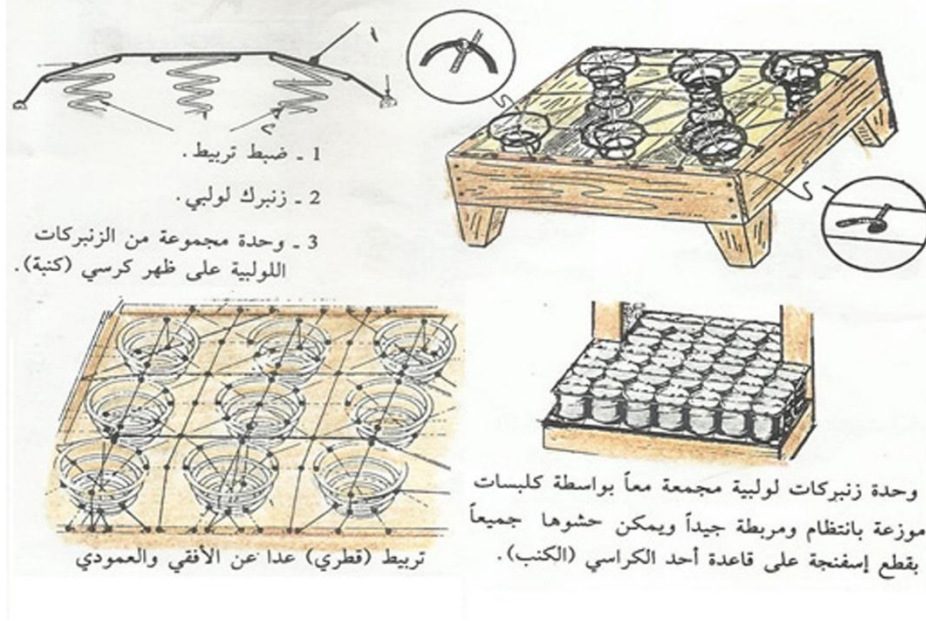 1 ـ ضبط تربيط .
2 ـ زنبرك لولبي .
3 ـ وحدة مجموعة من الزنبركات
اللولبية على ظهر كرسي (كنبة) .
تربيط (قطري) عدا عن الأفقي والعمودي
وحدة زنبركات لولبية مجمعة معاً بواسطة كلبسات
موزعة بانتظام ومربطة جيداً ويمكن حشوها جميعاً
بقطع إسفنجة على قاعدة أحد الكراسي (الكنب) .